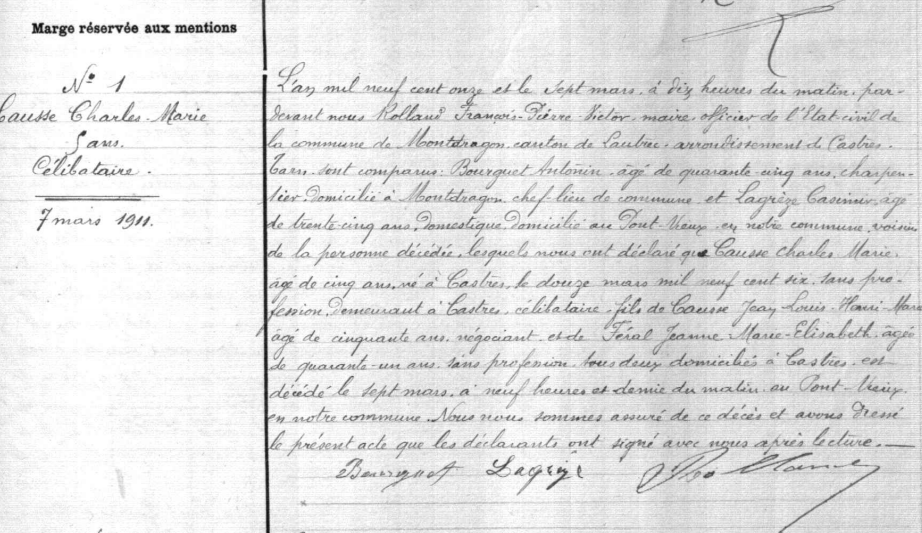 Marge réservée aux mentions
N° 1
Causse Charles Marie
5 ans.
Célibataire.
7 mars 1911.
L'an mil neuf cent onze et le sept mars, à dix heures du matin, par-
devant nous Rolland François-Pierre-Victor, maire, officier de l'Etat-civil de
la commune de Montdragon, canton de Lautrec, arrondissement de Castres,
Tarn, sont comparus: Bourguet Antonin, âgé de quarante-cinq ans, charpen-
tier, domicilié à Montdragon, chef-lieu de commune et Lagrèze Casimir, âgé
de trente-cinq ans, domestique, domicilié au Pont-Vieux, en notre commune, voisins
de la personne décédée, lesquels nous ont déclaré que Causse Charles Marie,
âgé de cinq ans, né à Castres, le douze mars mil neuf cent six, sans pro-
fession, demeurant à Castres, célibataire, fils de Causse Jean Louis-Henri-Marie
âgé de cinquante ans, négociant et de Féral Jeanne-Marie-Elisabeth, âgée
de quarante-un ans, sans profession, tous deux domiciliés à Castres, est
décédé le sept mars, à neuf heures et demie du matin, au Pont-Vieux,
en notre commune. Nous nous sommes assuré de ce décès et avons dressé
le présent acte que les déclarants ont signé avec nous après lecture.
Bourguet Lagrèze